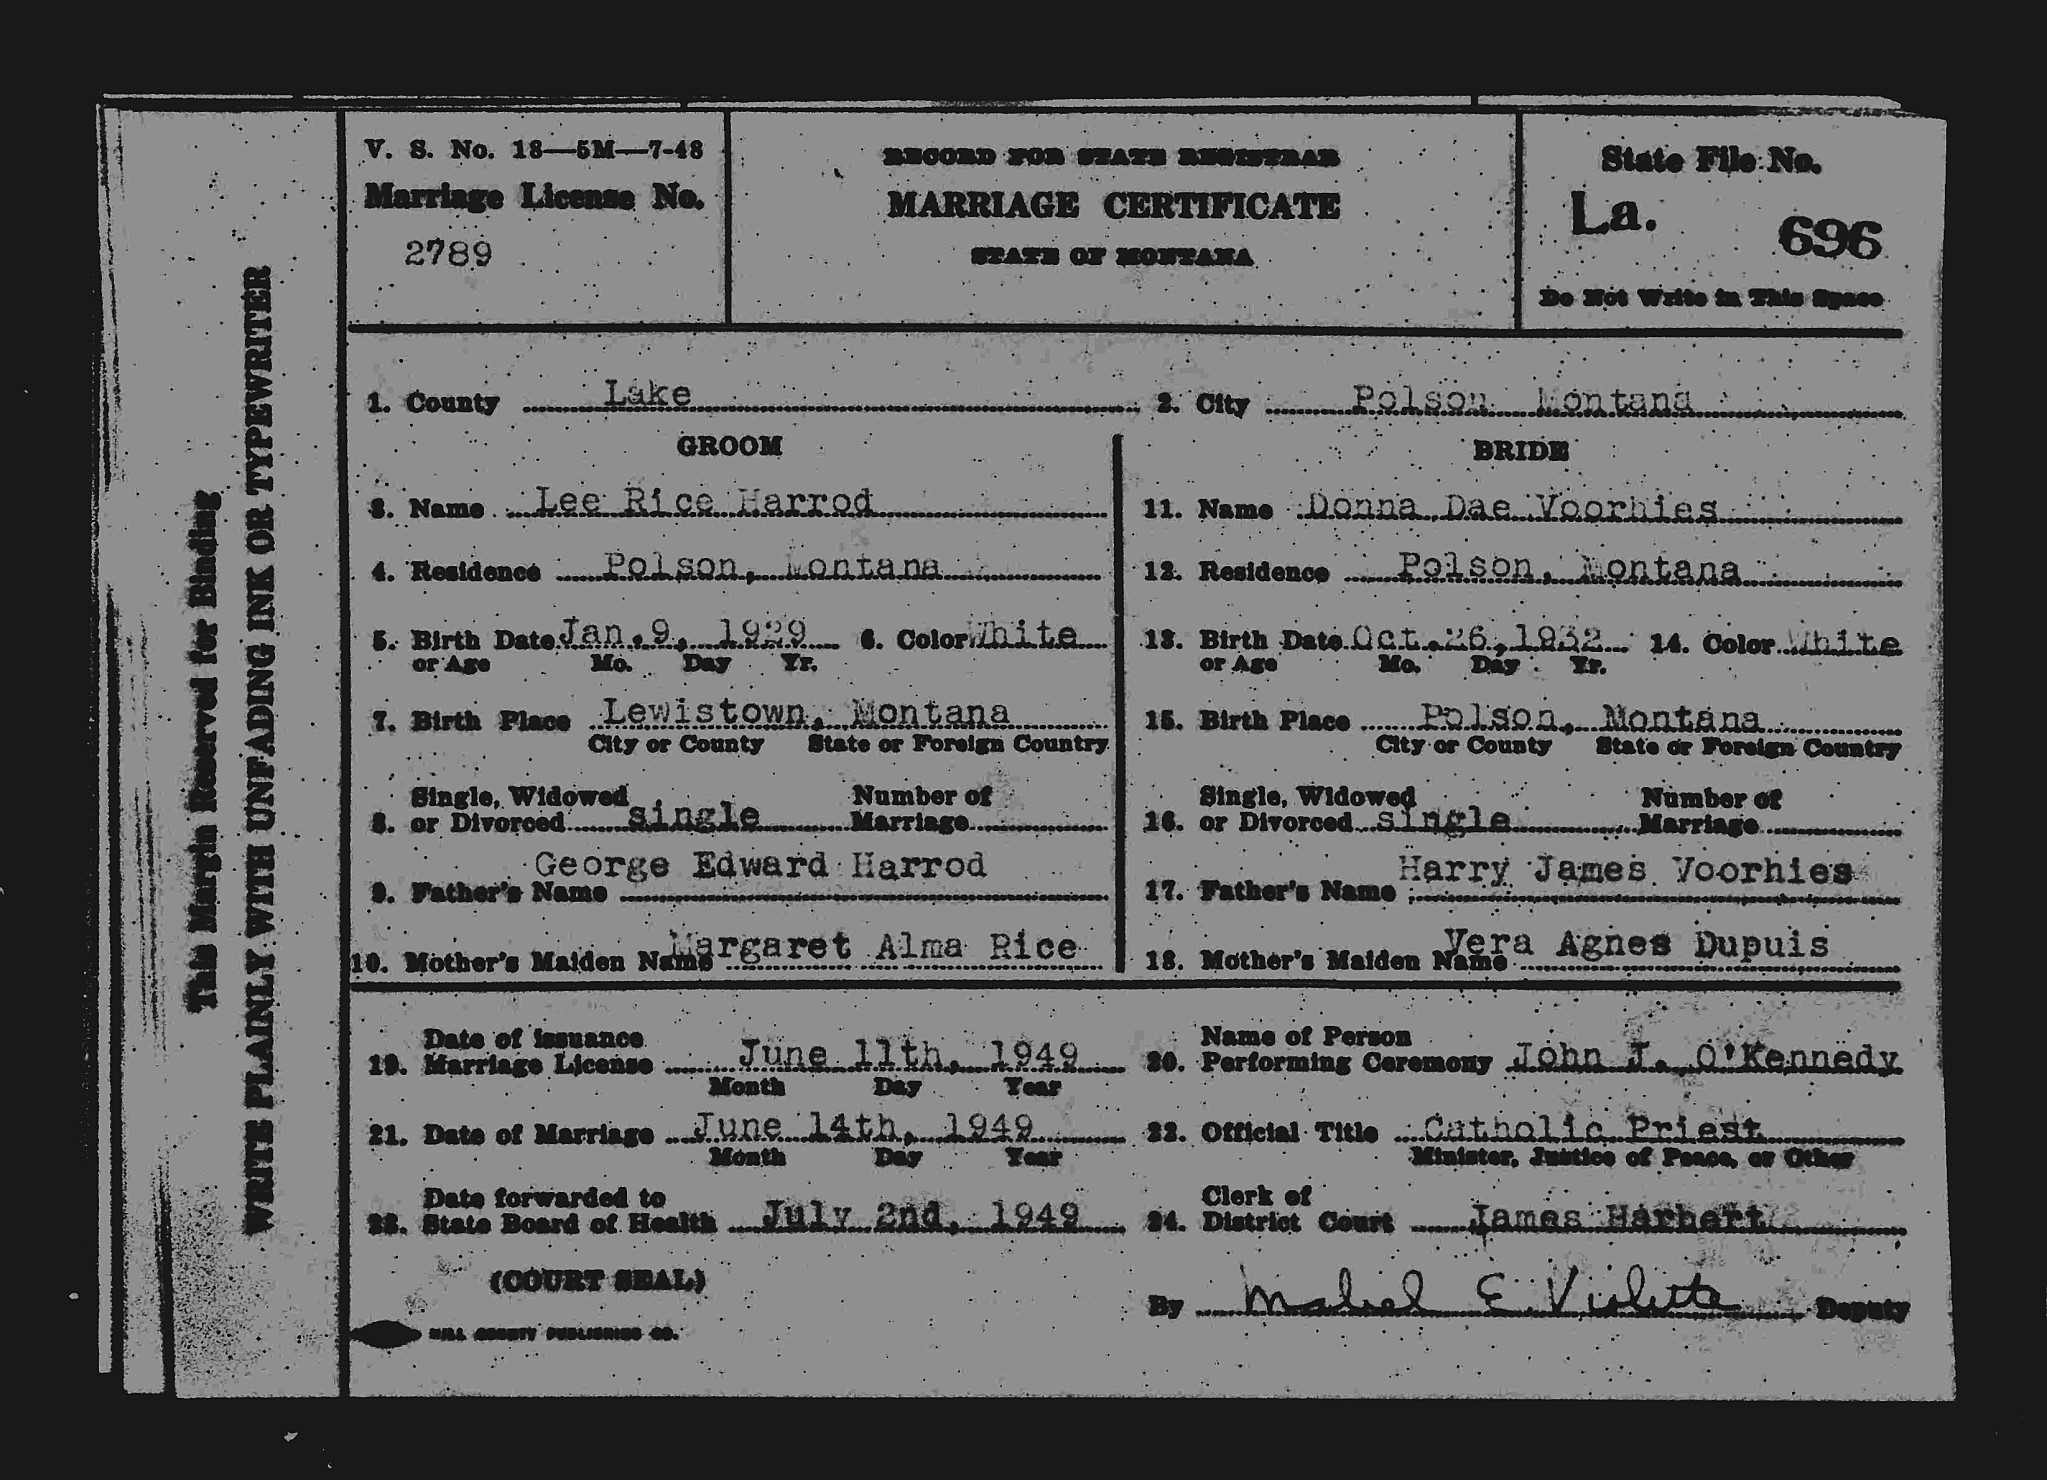 V. S. No. 18—5M—7-48
Marriage License No.
2789
RECORD FOR STATE REGISTRAR
MARRIAGE CERTIFICATE
STATE OF MONTANA
State File No.
La. 696
Do Not Write in This Space
This Margin Reserved for Binding
WRITE PLAINLY WITH UNFADING INK OR TYPEWRITER
1. County Lake 2. City Polson Montana
GROOM
3. Name Lee Rice Harrod
4. Residence Polson, Montana
5. Birth Date Jan. 9, 1929 6. Color White
or Age Mo. Day Yr.
7. Birth Place Lewistown, Montana
City or County State or Foreign Country
Single, Widowed Number of
8. or Divorced single Marriage
George Edward Harrod
9. Father's Name
10. Mother's Maiden Name Margaret Alma Rice
BRIDE
11. Name Donna Dae Voorhies
12. Residence Polson, Montana
13. Birth Date Oct. 26, 1932 14. Color White
or Age Mo. Day Yr.
15. Birth Place Polson, Montana
City or County State or Foreign Country
Single, Widowed Number of
16. or Divorced single Marriage
Harry James Voorhies
17. Father's Name
18. Mother's Maiden Name Vera Agnes Dupuis
Date of issuance
19. Marriage License June 11th, 1949
Month Day Year
Name of Person
20. Performing Ceremony John J. O'Kennedy
21. Date of Marriage June 14th, 1949
Month Day Year
22. Official Title Catholic Priest
Minister, Justice of Peace, or Other
Date forwarded to
23. State Board of Health July 2nd, 1949
Clerk of
24. District Court James Harbert
(COURT SEAL)
By Mabel E. Violette Deputy
HILL COUNTY PUBLISHING CO.